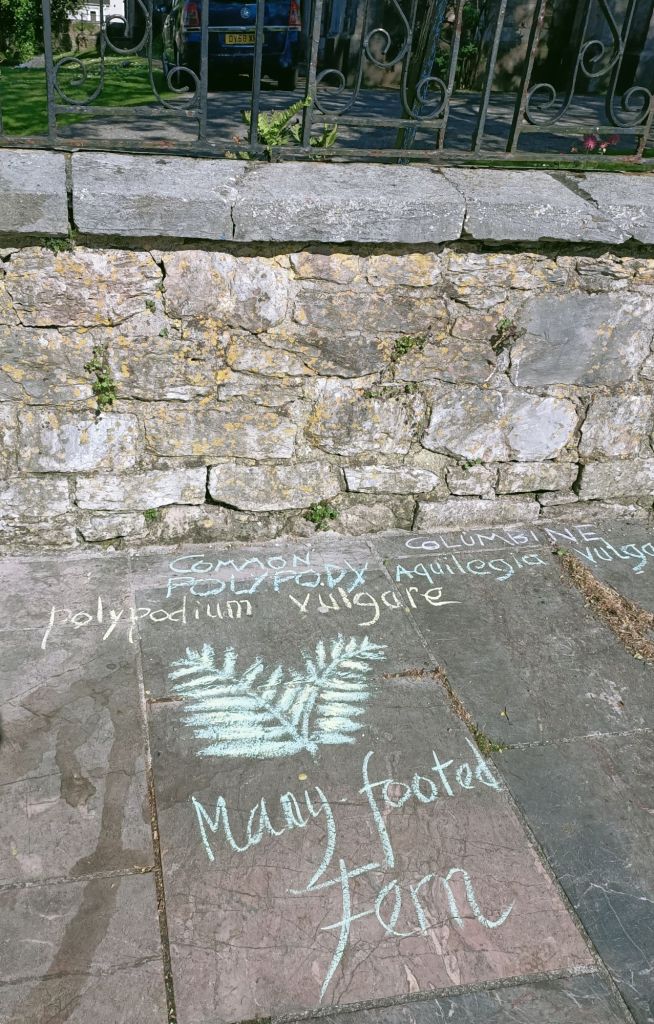 COMMON
POLYPODY
polypodium vulgare
COLUMBINE
Aquilegia vulga
Many-footed
Fern